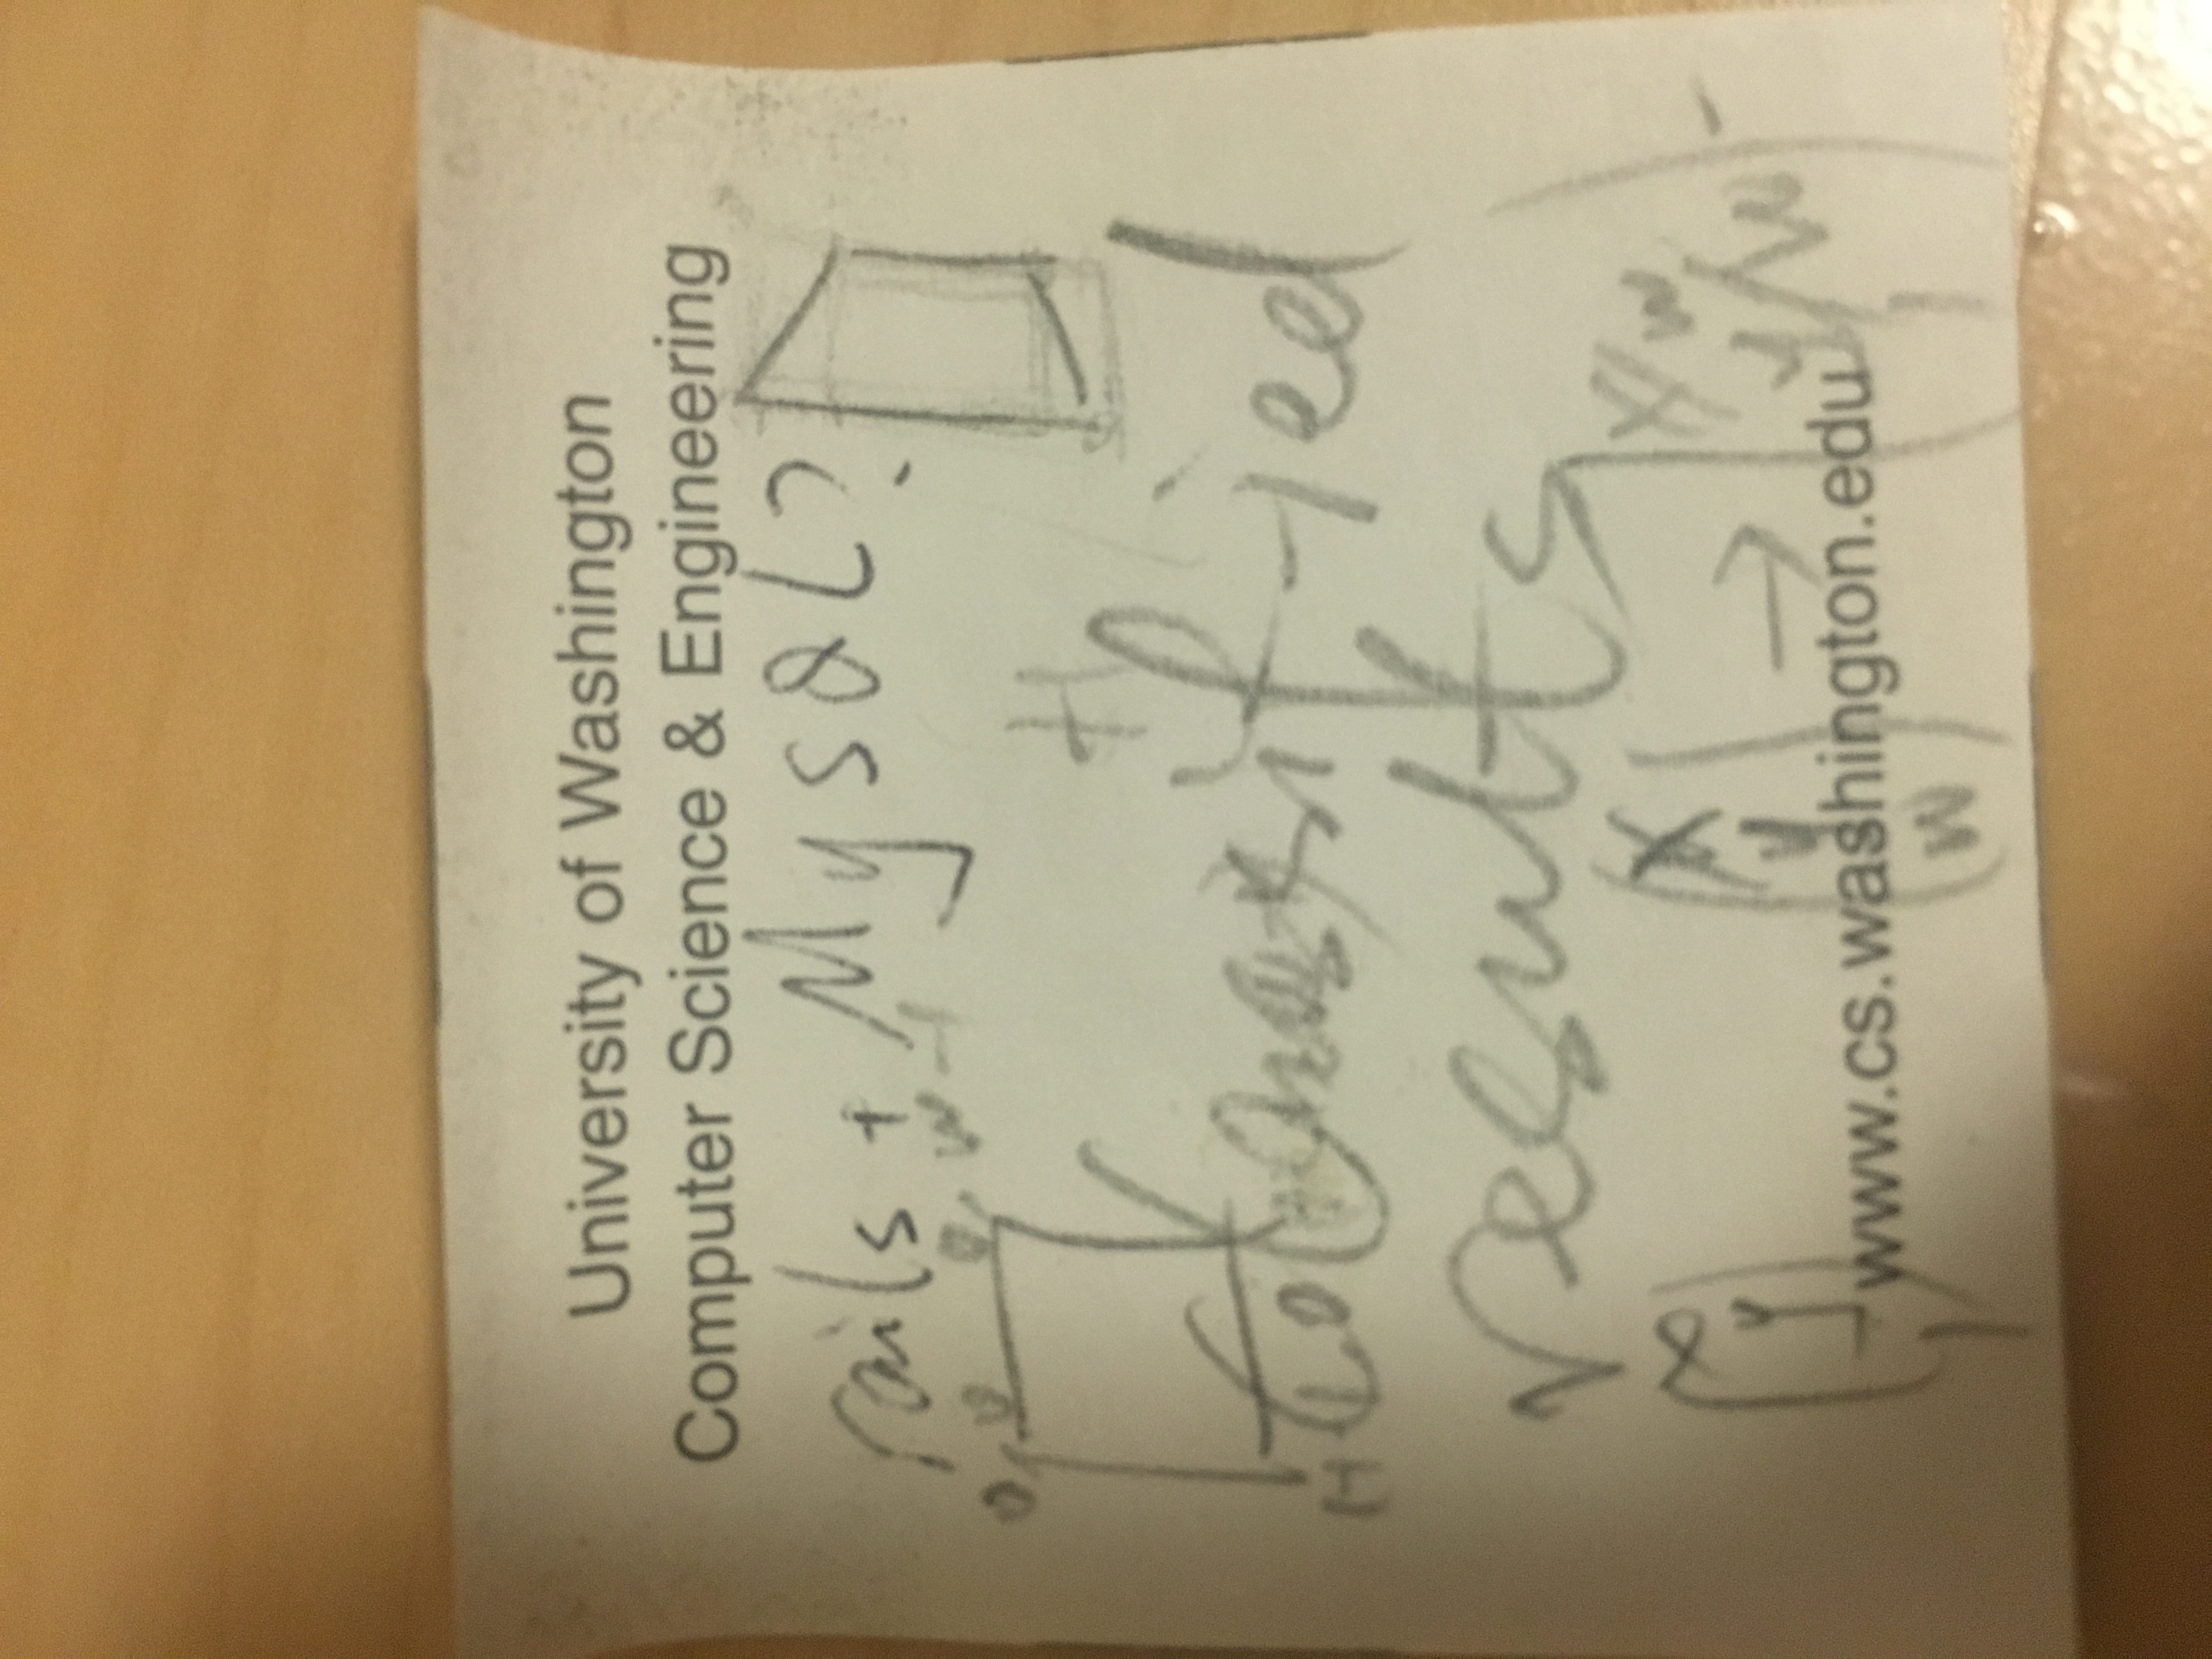 University of Washington
Computer Science & Engineering
rails + MySQL?
0, 0
0, W-1
H
classified
results
x
y
1
x
y
w
→
x/w
y/w
1
www.cs.washington.edu